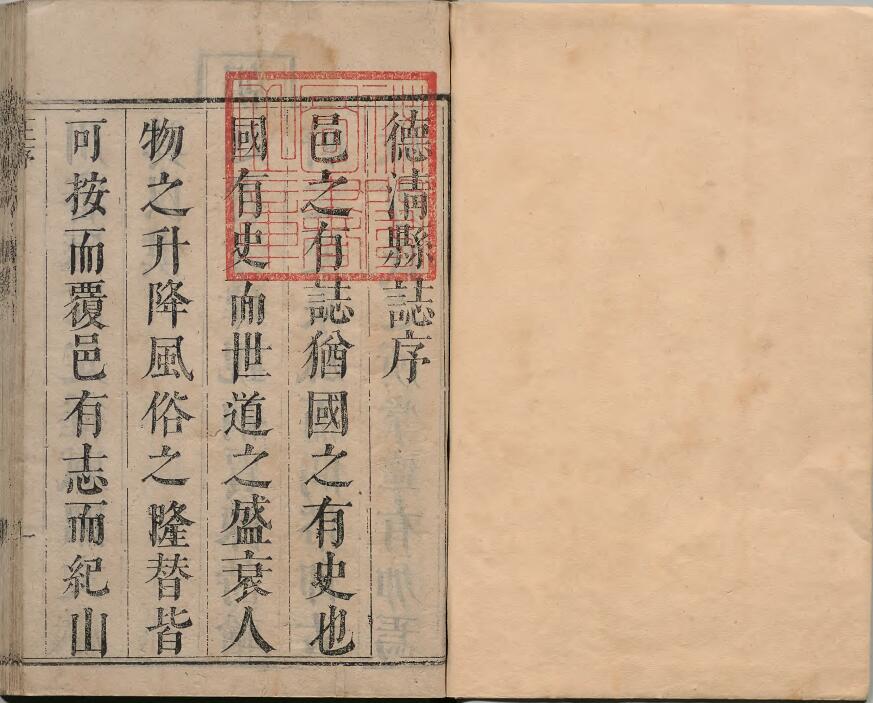 德清縣誌序
邑之有誌猶國之有史也
國有史而世道之盛衰人
物之升降風俗之隆替皆
可按而覆邑有志而紀山
序
一